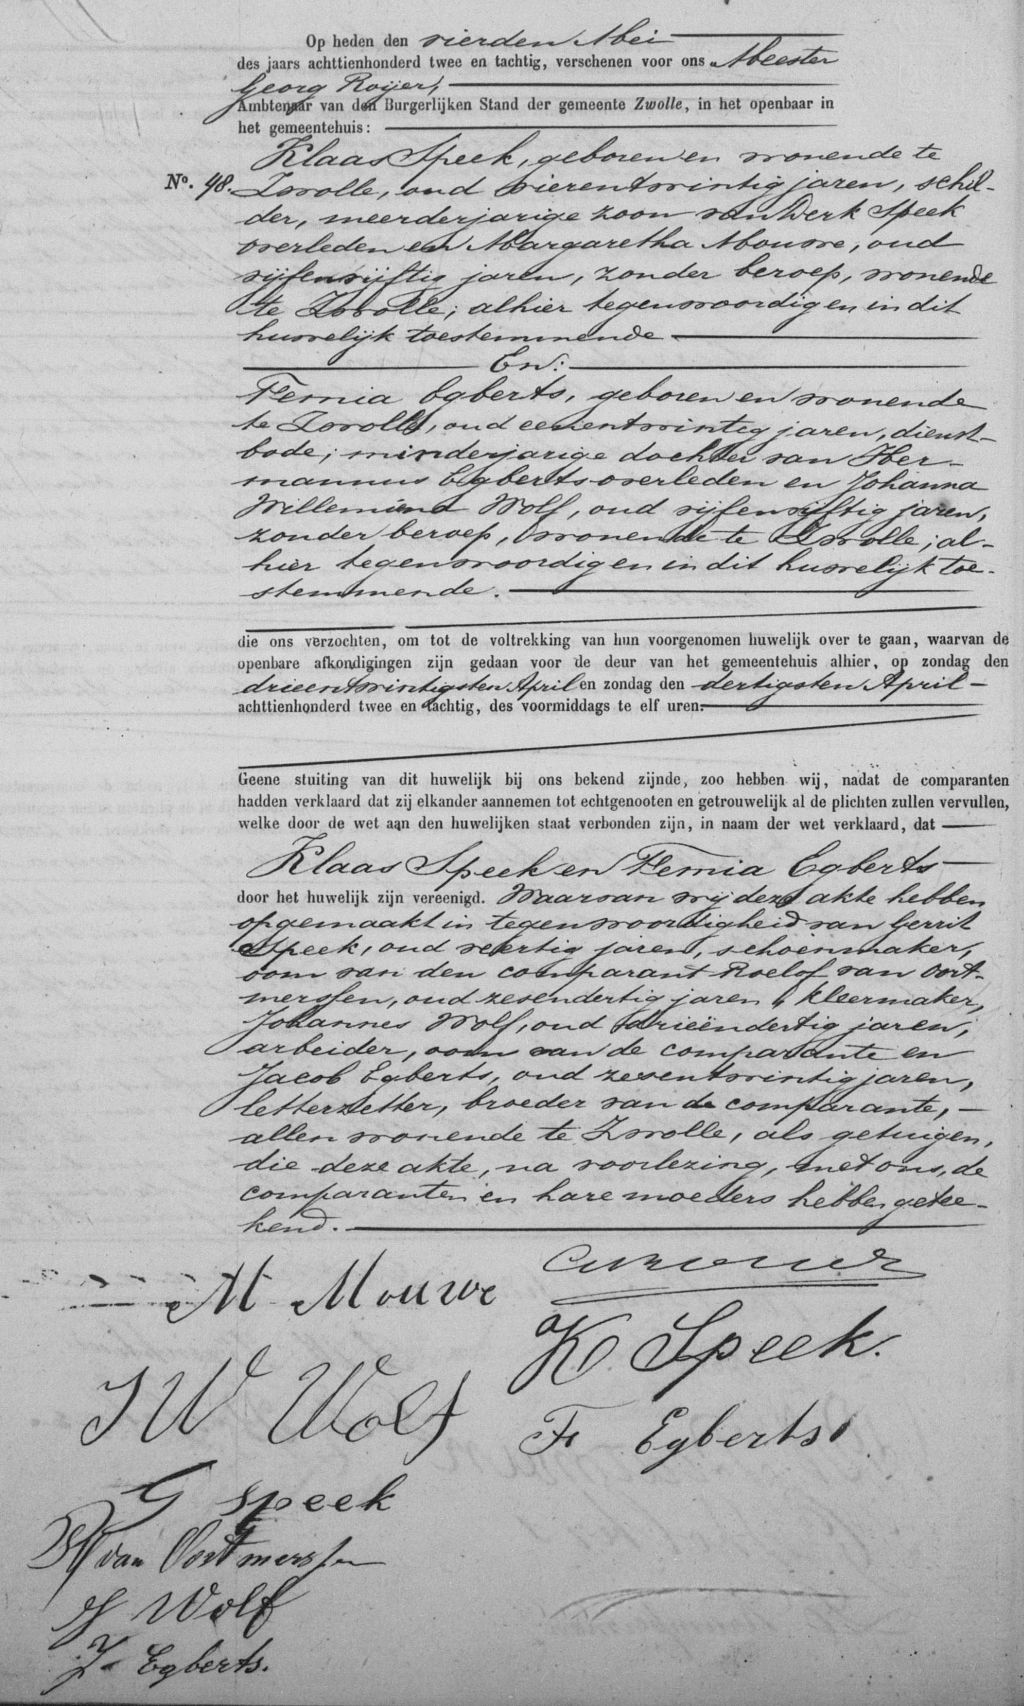 Op heden den vierden Mei
des jaars achttienhonderd twee en tachtig, verschenen voor ons Meester
Georg Roijer,
Ambtenaar van den Burgerlijken Stand der gemeente Zwolle, in het openbaar in
het gemeentehuis:
Klaas Speek, geboren en wonende te
No. 48. Zwolle, oud vierentwintig jaren, schil-
der, meerderjarige zoon van Derk Speek
overleden en Margaretha Mouwe, oud
vijfenvijftig jaren, zonder beroep, wonende
te Zwolle; alhier tegenwoordig en in dit
huwelijk toestemmende
En:
Femia Egberts, geboren en wonende
te Zwolle, oud eenentwintig jaren, dienst-
bode; minderjarige dochter van Her-
mannus Egberts overleden en Johanna
Willemina Wolf, oud vijfenvijftig jaren,
zonder beroep, wonende te Zwolle; al-
hier tegenwoordig en in dit huwelijk toe-
stemmende.
die ons verzochten, om tot de voltrekking van hun voorgenomen huwelijk over te gaan, waarvan de
openbare afkondigingen zijn gedaan voor de deur van het gemeentehuis alhier, op zondag den
drieentwintigsten April en zondag den dertigsten April
achttienhonderd twee en tachtig, des voormiddags te elf uren.
Geene stuiting van dit huwelijk bij ons bekend zijnde, zoo hebben wij, nadat de comparanten
hadden verklaard dat zij elkander aannemen tot echtgenooten en getrouwelijk al de plichten zullen vervullen,
welke door de wet aan den huwelijken staat verbonden zijn, in naam der wet verklaard, dat
Klaas Speek en Femia Egberts
door het huwelijk zijn vereenigd. Waarvan wij deze akte hebben
opgemaakt in tegenwoordigheid van Gerrit
Speek, oud veertig jaren, schoenmaker,
oom van den comparant Roelof van Oort-
merssen, oud zesendertig jaren, kleermaker,
Johannes Wolf, oud drieëndertig jaren,
arbeider, oom van de comparante en
Jacob Egberts, oud zesentwintig jaren,
letterzetter, broeder van de comparante,
allen wonende te Zwolle, als getuigen,
die deze akte, na voorlezing, met ons, de
comparanten en hare moeders hebben getee-
kend.
M Mouwe
K. Speek.
J W Wolf
F. Egberts
G Speek
R van Oortmerssen
J Wolf
J. Egberts.